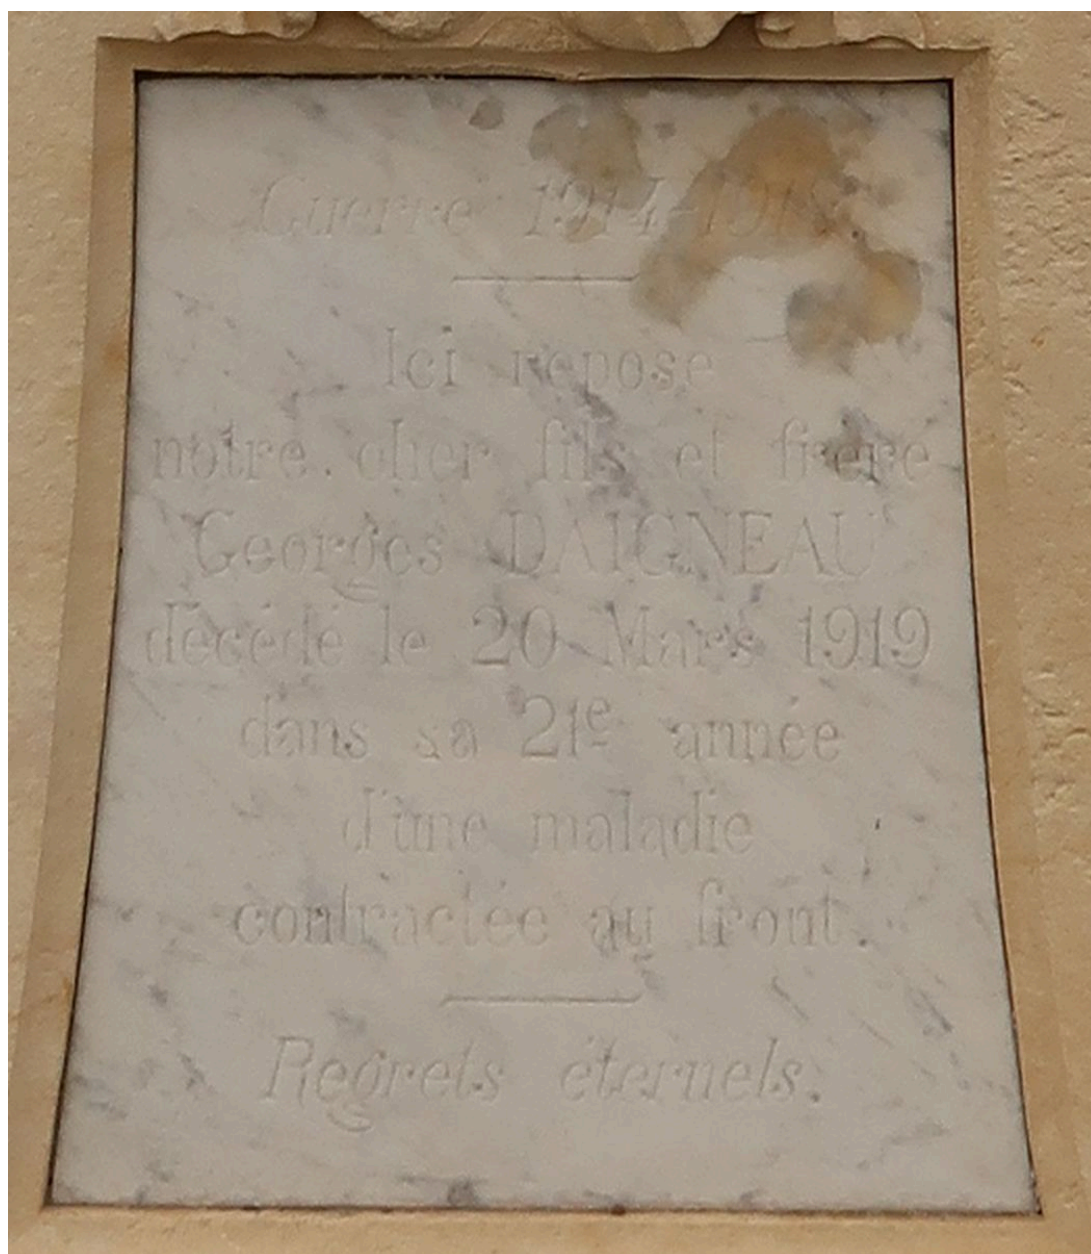 Guerre 1914-1918.
Ici repose
notre cher fils et frère
Georges DAIGNEAU
décédé le 20 Mars 1919
dans sa 21e année
d'une maladie
contractée au front.
Regrets éternels.